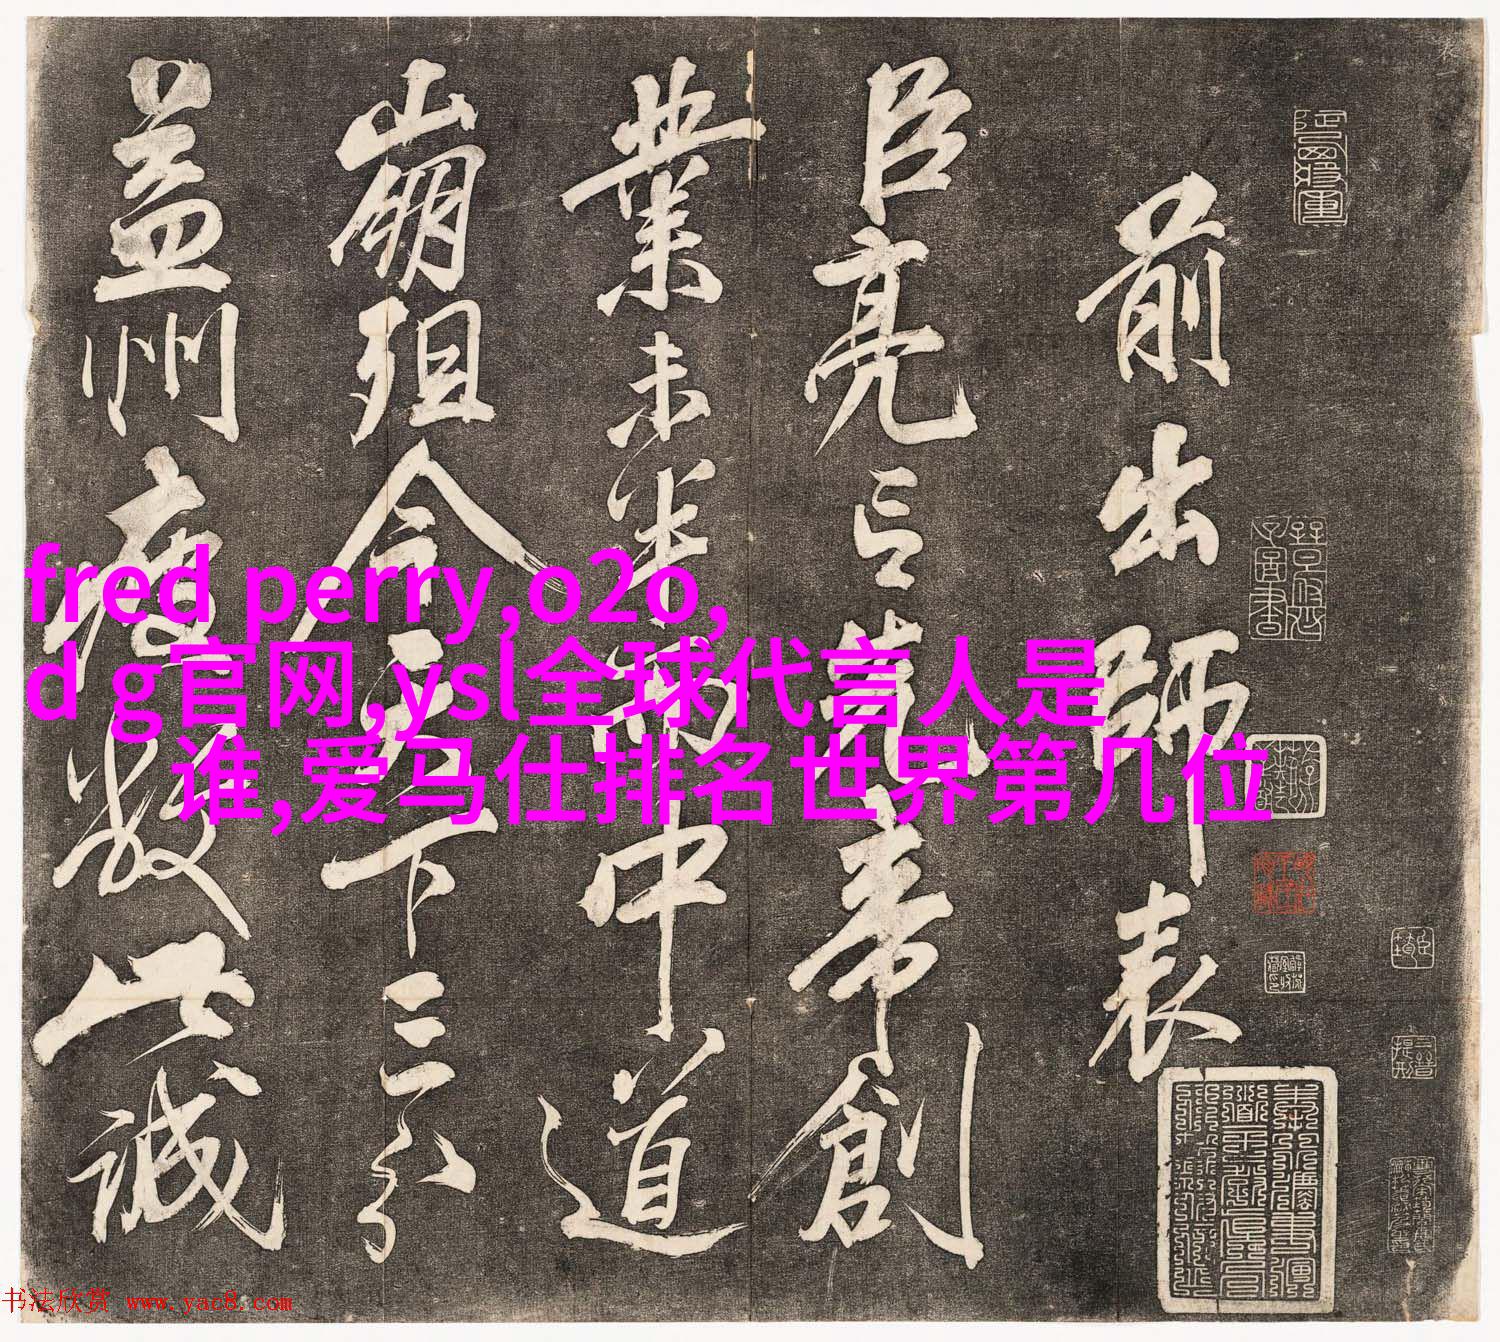 前出師表
臣亮言先帝創
業未半而中道
崩殂今天下三分
益州疲敝此誠
fred perry,o2o,
d g官网,ysl全球代言人是
谁,爱马仕排名世界第几位
书法欣赏 www.yac8.com